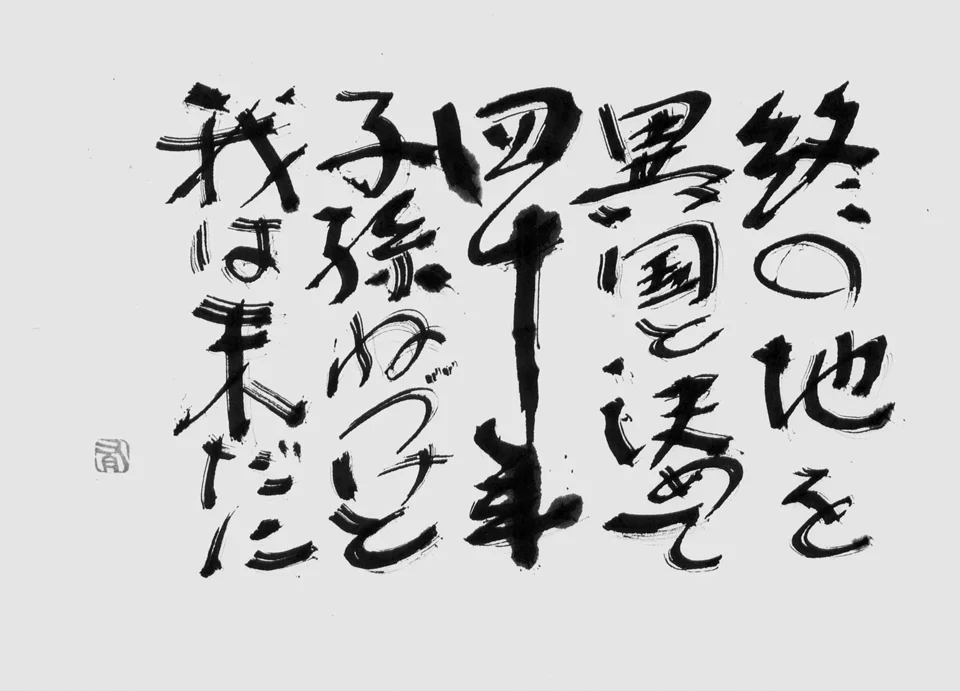 終の地を
異国と決めて
四十年
子孫ねづけと
我は未だに